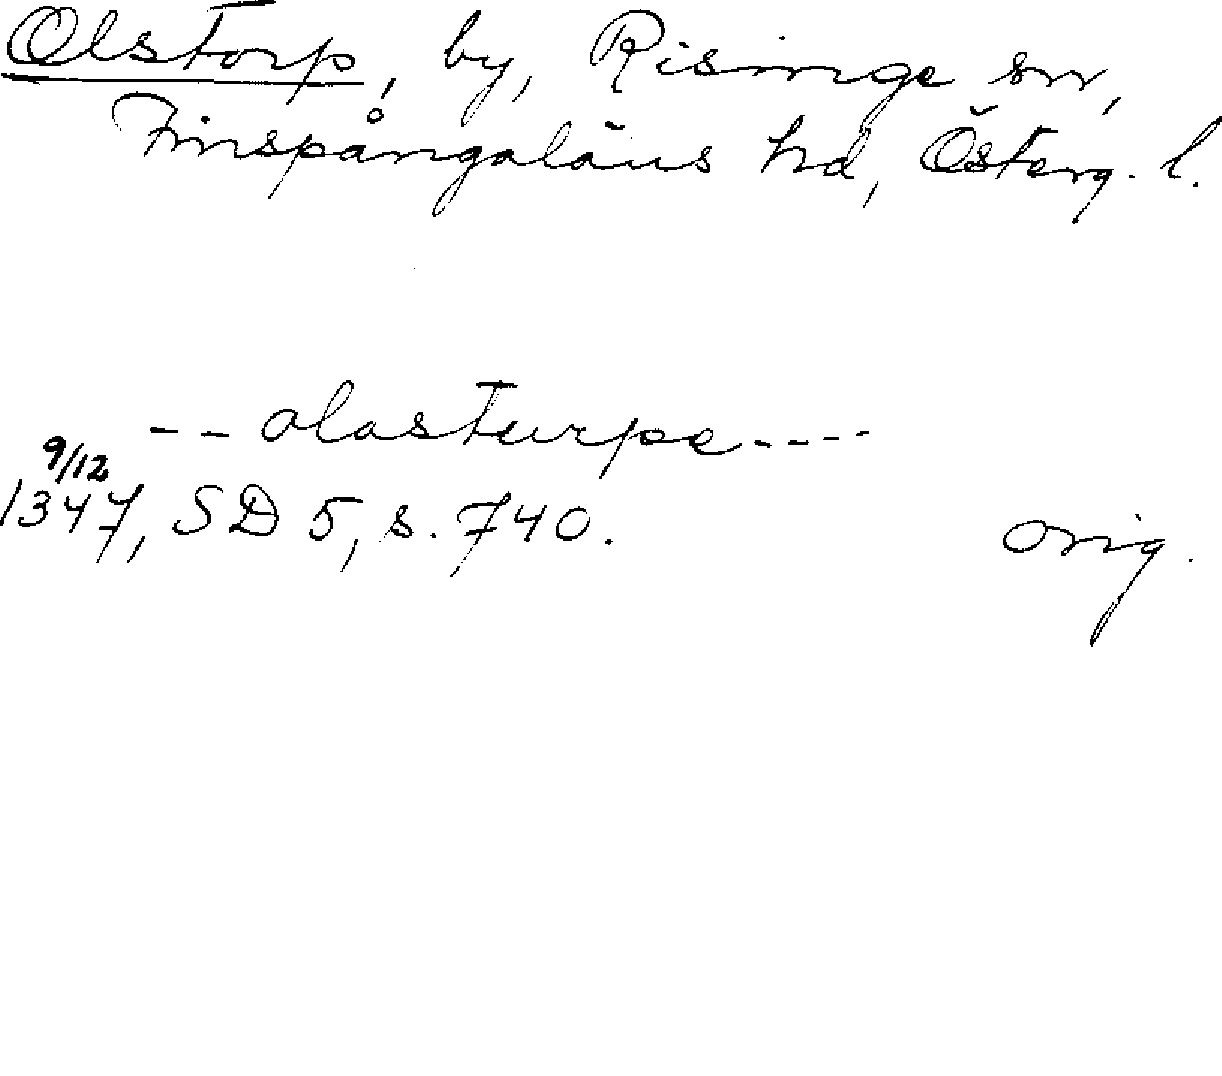 Olstorp, by, Risinge sn,
Finspångaläns hd, Österg. l.
-- olasturpe ----
9/12
1347, SD 5, s. 740.
orig.